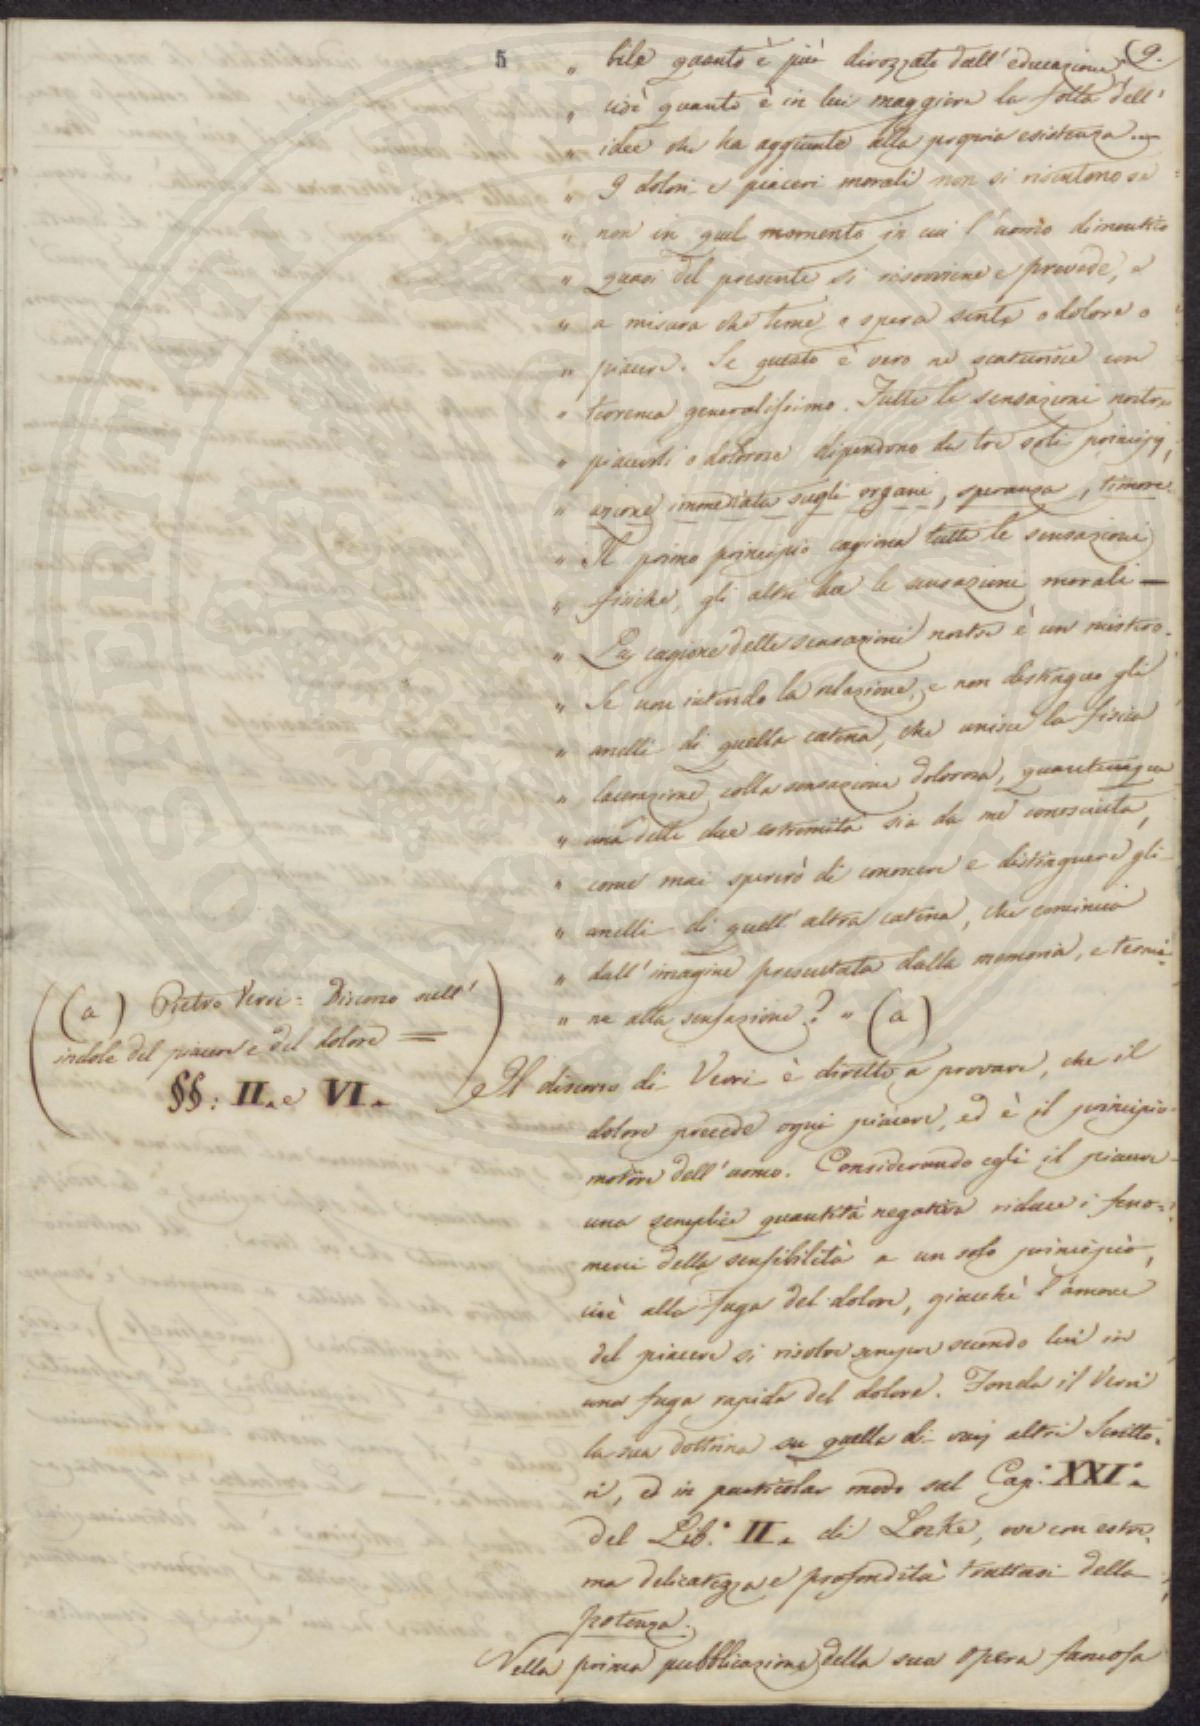 5
9.
„ bile quanto è più dirozzato dall'educazione,
„ cioè quanto è in lui maggiore la folla dell'
„ idee che ha aggiunte alla propria esistenza ...
„ I dolori e piaceri morali non si risentono se
„ non in quel momento in cui l'uomo dimentico
„ quasi del presente si risovviene e prevede, e
„ a misura che teme o spera sente o dolore o
„ piacere. Se questo è vero ne scaturisce un
„ teorema generalissimo. Tutte le sensazioni nostre
„ piacevoli o dolorose dipendono da tre soli principj,
„ azione immediata sugli organi, speranza, timore.
„ Il primo principio cagiona tutte le sensazioni
„ fisiche, gli altri due le sensazioni morali —
„ La cagione delle sensazioni nostre è un mistero.
„ Se non intendo la relazione, e non distinguo gli
„ anelli di quella catena, che unisce la fisica
„ lacerazione colla sensazione dolorosa, quantunque
„ una delle due estremità sia da me conosciuta,
„ come mai sperirò di conoscere e distinguere gli
„ anelli di quell'altra catena, che comincia
„ dall'imagine presentata dalla memoria, e termi-
„ na alla sensazione? „ (a)
(a) Pietro Verri = Discorso sull'
indole del piacere e del dolore =
§§: II. e VI.
Il discorso di Verri è diretto a provare, che il
dolore precede ogni piacere, ed è il principio
motore dell'uomo. Considerando egli il piacere
una semplice quantità negativa riduce i feno=
meni della sensibilità a un solo principio,
cioè alla fuga del dolore, giacchè l'amore
del piacere si risolve sempre secondo lui in
una fuga rapida del dolore. Fonda il Verri
la sua dottrina su quella di varj altri Scritto=
ri, ed in particolar modo sul Cap: XXI.
del Lib. II. di Locke, ove con estre=
ma delicatezza e profondità trattasi della
potenza.
Nella prima pubblicazione della sua opera famosa